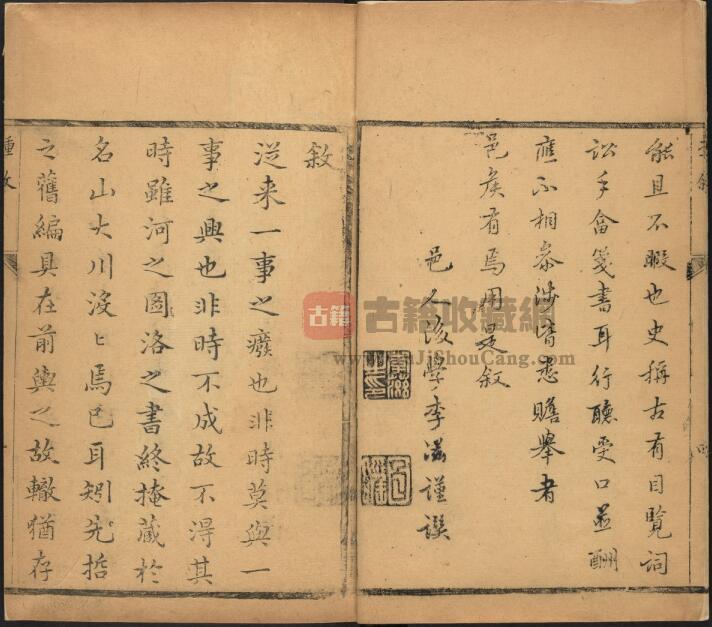 能且不暇也史稱古有目覽詞
訟手畣箋書耳行聽受口並酬
應不相叅涉皆悉贍舉者
邑矦有焉用是叙
邑人後學李滋謹譔
敘
從来一事之癈也非時莫與一
事之興也非時不成故不得其
時雖河之圖洛之書終掩蔵於
名山大川沒〻焉已耳矧先哲
之舊編具在前輿之故轍猶存
古籍
古籍收藏網
www.GuJiShouCang.com